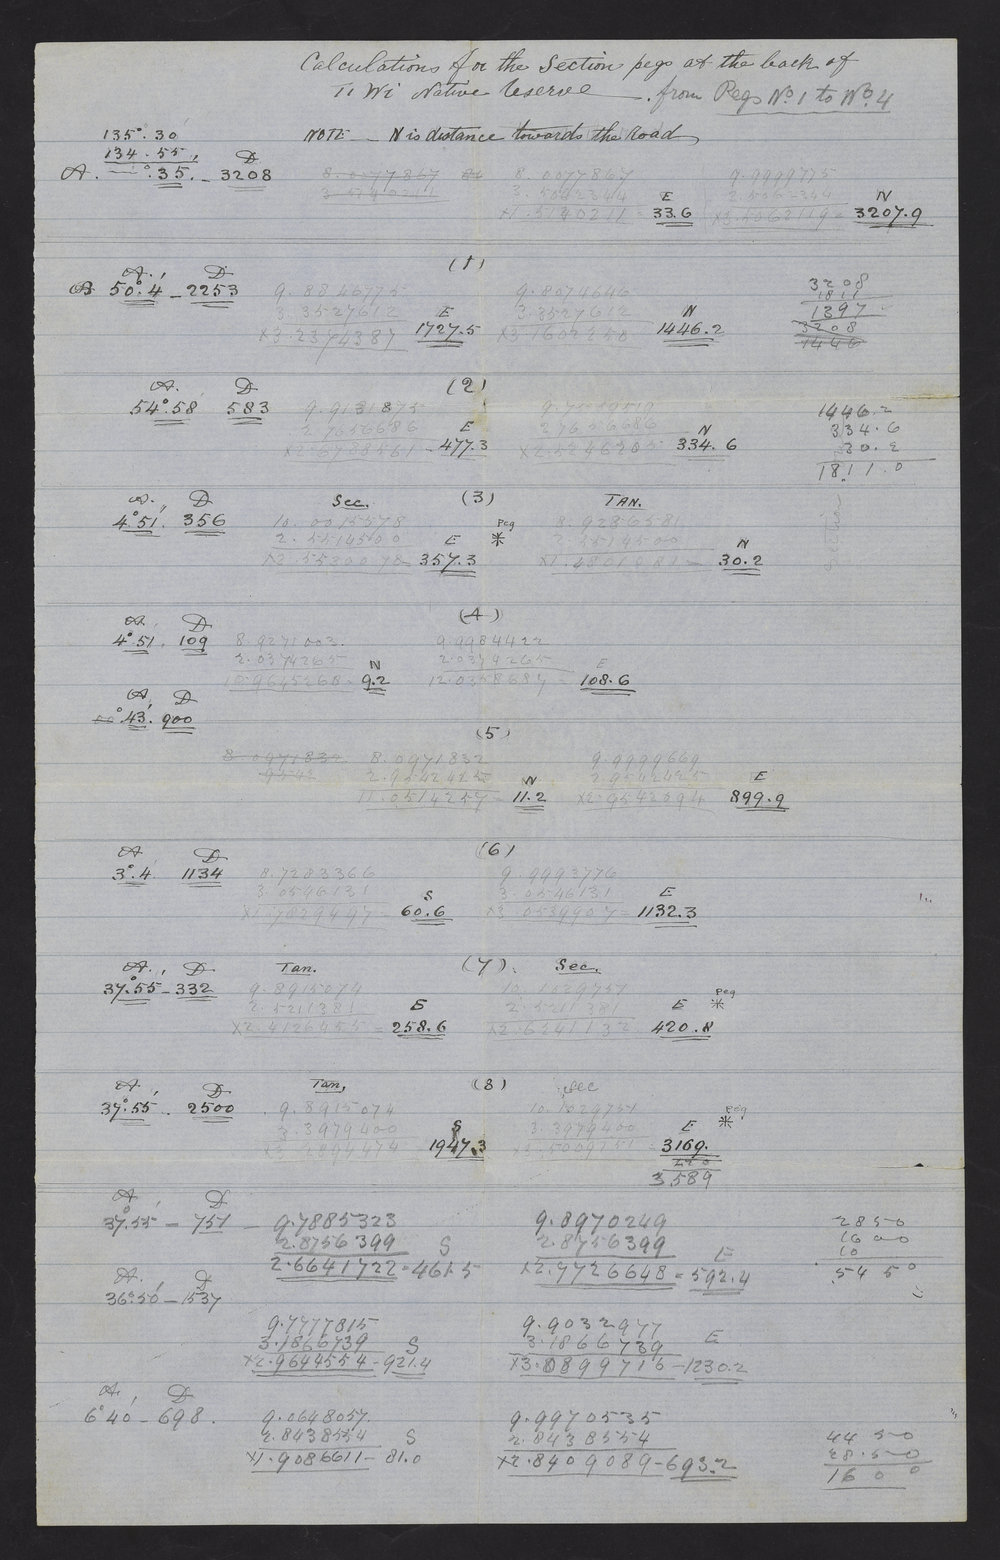 Calculations for the Section pegs at the back of
Ti Wi Native Reserve from Pegs No. 1 to No. 4
NOTE - N is distance towards the Road
135°. 30'
134. 55,
A. °.35. - 3208 D
8.0077867
3.5062344
X1.5140211 = 33.6 E
9.9999775
X3.5062119 = 3207.9 N
(1)
A. D
50°.4 - 2253
9.8846775
3.3527612
X3.2374387 1727.5 E
9.8074646
3.3527612
X3.1602250 1446.2 N
3208
1811
1397
3208
1446
(2)
A. D
54°.58 583
9.9131875
2.7656686
X2.6788561 - 477.3 E
2.7656686
X2.5246205 334.6 N
1446.2
334.6
30.2
1811.0
(3)
A. D Sec. TAN.
4°51'. 356
10.0015578
2.5514500
X2.5530078 - 357.3 E
Peg
*
8.9286581
2.5514500
X1.4801081 - 30.2 N
(4)
A. D
4°51. 109
8.9271003
2.0374265
10.9645268 - 9.2 N
9.9984422
2.0374265
12.0358687 - 108.6 E
A. D
°43'. 900
(5)
8.0971832
8.0971832
2.9542425
11.0514257 - 11.2 N
9.9999669
2.9542425
X2.9542094 899.9 E
(6)
A D
3°.4. 1134
8.7283366
3.0546131
X1.7829497 - 60.6 S
9.9993776
3.0546131
X3.0539907 - 1132.3 E
(7).
A., D Tan. Sec.
37°.55 - 332
9.8915074
2.5211381
X2.4126455 - 258.6
10.1029757
2.5211381
X2.6241132 420.8 E
Peg
*
(8)
A. D Tan, Sec
37°.55 . 2500
9.8915074
3.3979400
X3.2894474 1947.3 S
10.1029757
3.3979400
3169. E
Peg
*
420
3589
A. D
37°.55 - 751 - 9.7885323
2.8756399
2.6641722 = 461.5 S
9.8970249
2.8756399
X2.7726648 = 592.4 E
2850
1600
10
5450
A. D
36°50 - 1537
9.7777815
3.1866739
X2.9644554 - 921.4 S
9.9032977
3.1866739
X3.0899716 - 1230.2 E
A. D
6°40 - 698.
9.0648057
2.8438554
X1.9086611 - 81.0 S
9.9970535
2.8438554
X2.8409089 - 693.2
4450
28.50
1600